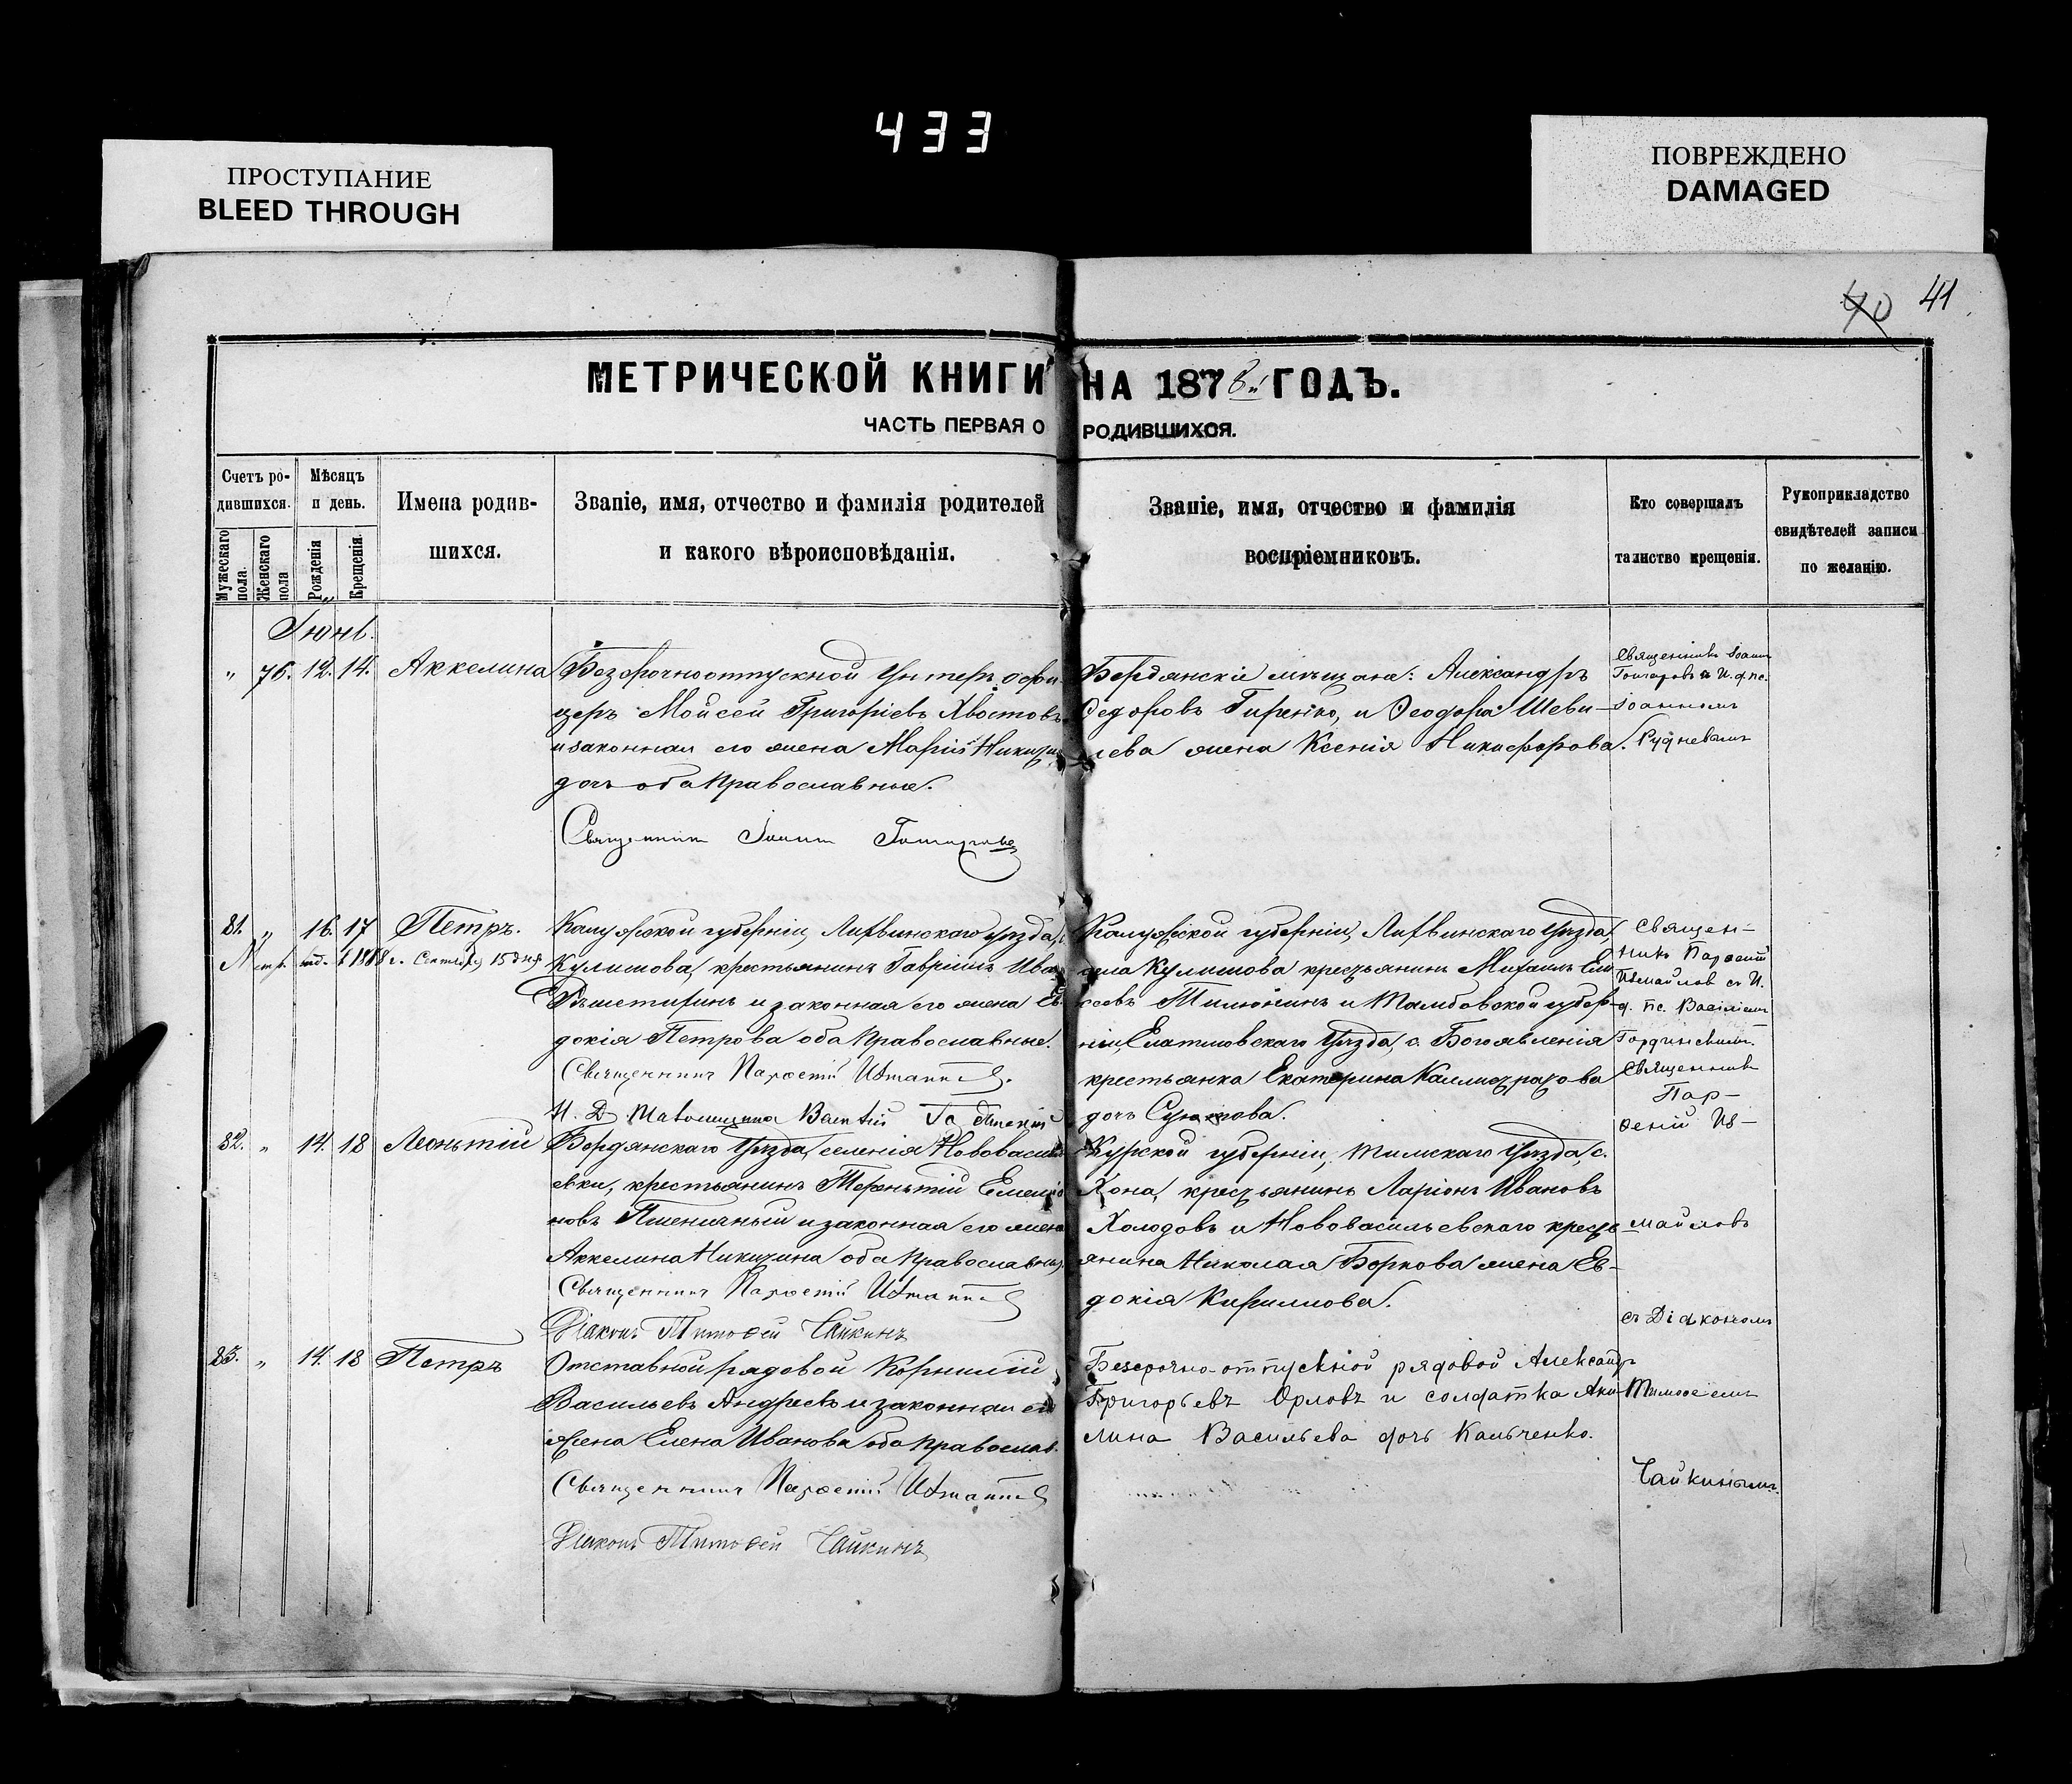 433
ПРОСТУПАНИЕ
BLEED THROUGH
ПОВРЕЖДЕНО
DAMAGED
40 41
МЕТРИЧЕСКОЙ КНИГИ НА 1878й ГОДЪ.
ЧАСТЬ ПЕРВАЯ О РОДИВШИХСЯ.
Счетъ ро-
дившихся.
Мужескаго пола.
Женскаго пола
Мѣсяцъ
и день.
Рожденія
Крещенія.
Имена родив-
шихся.
Званіе, имя, отчество и фамилія родителей
и какого вѣроисповѣданія.
Званіе, имя, отчество и фамилія
воспріемниковъ.
Кто совершалъ
таинство крещенія.
Рукоприкладство
свидѣтелей записи
по желанію.
Іюнь.
„ 76. 12. 14. Аккелина
Безсрочноотпускной Унтеръ офи-
церъ Мойсей Григоріевъ Хвостовъ
и законная его жена Марія Никити
дочь оба Православные.
Священникъ Іоаннъ Гончаровъ
Бердянскіе мѣщане: Александръ
Седоровъ Гиренко, и Ѳеодора Шеви-
лева жена Ксенія Никифорова.
Священникъ Іоаннъ
Гончаровъ съ И. д. пс.
Іоанномъ
Рудневымъ
81. „ 16. 17 Петръ.
1888 г. Сентября 15 дня
Калужской губерніи, Лихвинскаго Уѣзда, с.
Кулишова, крестьянинъ Гавріилъ Ива
Рѣшетиринъ и законная его жена Ев-
докія Петрова оба Православные.
Священникъ Парѳеній Измаиловъ.
Калужской губерніи, Лихвинскаго Уѣзда,
села Кулишова крестьянинъ Михаилъ Ели
сеевъ Тилюнинъ и Тамбовской губер-
ніи, Елатмовскаго Уѣзда, с. Богоявленія
крестьянка Екатерина Каллистратова
дочь
Священ-
никъ Парѳеній
Измайлов съ И.
д. пс. Василіемъ
82. „ 14. 18 Леонтій
Бердянскаго Уѣзда, селенія Нововасиль
евки, крестьянинъ Терентій Емелья
новъ Пшеничный и законная его жена
Аккелина Никитина оба Православные.
Священникъ Парѳеній Измаиловъ
Діаконъ Тимоѳей Чайкинъ
Курской губерніи, Тимскаго Уѣзда, с.
Хона, крестьянинъ Ларіонъ Ивановъ
Холодовъ и Нововасильевскаго кресть
янина Николая Боркова жена Ев-
докія Кириллова.
Священникъ
Пар-
ѳеній Из-
майловъ
съ Діакономъ
Тимоѳеемъ
Чайкинымъ.
83. „ 14. 18 Петръ
Отставной рядовой Корнилій
Васильевъ Андреевъ и законная его
жена Елена Иванова оба Православ.
Священникъ Парѳеній Измаиловъ
Діаконъ Тимоѳей Чайкинъ
Безсрочно-отпускной рядовой Александръ
Григорьевъ Орловъ и солдатка Аки-
лина Васильева дочь Кальченко.